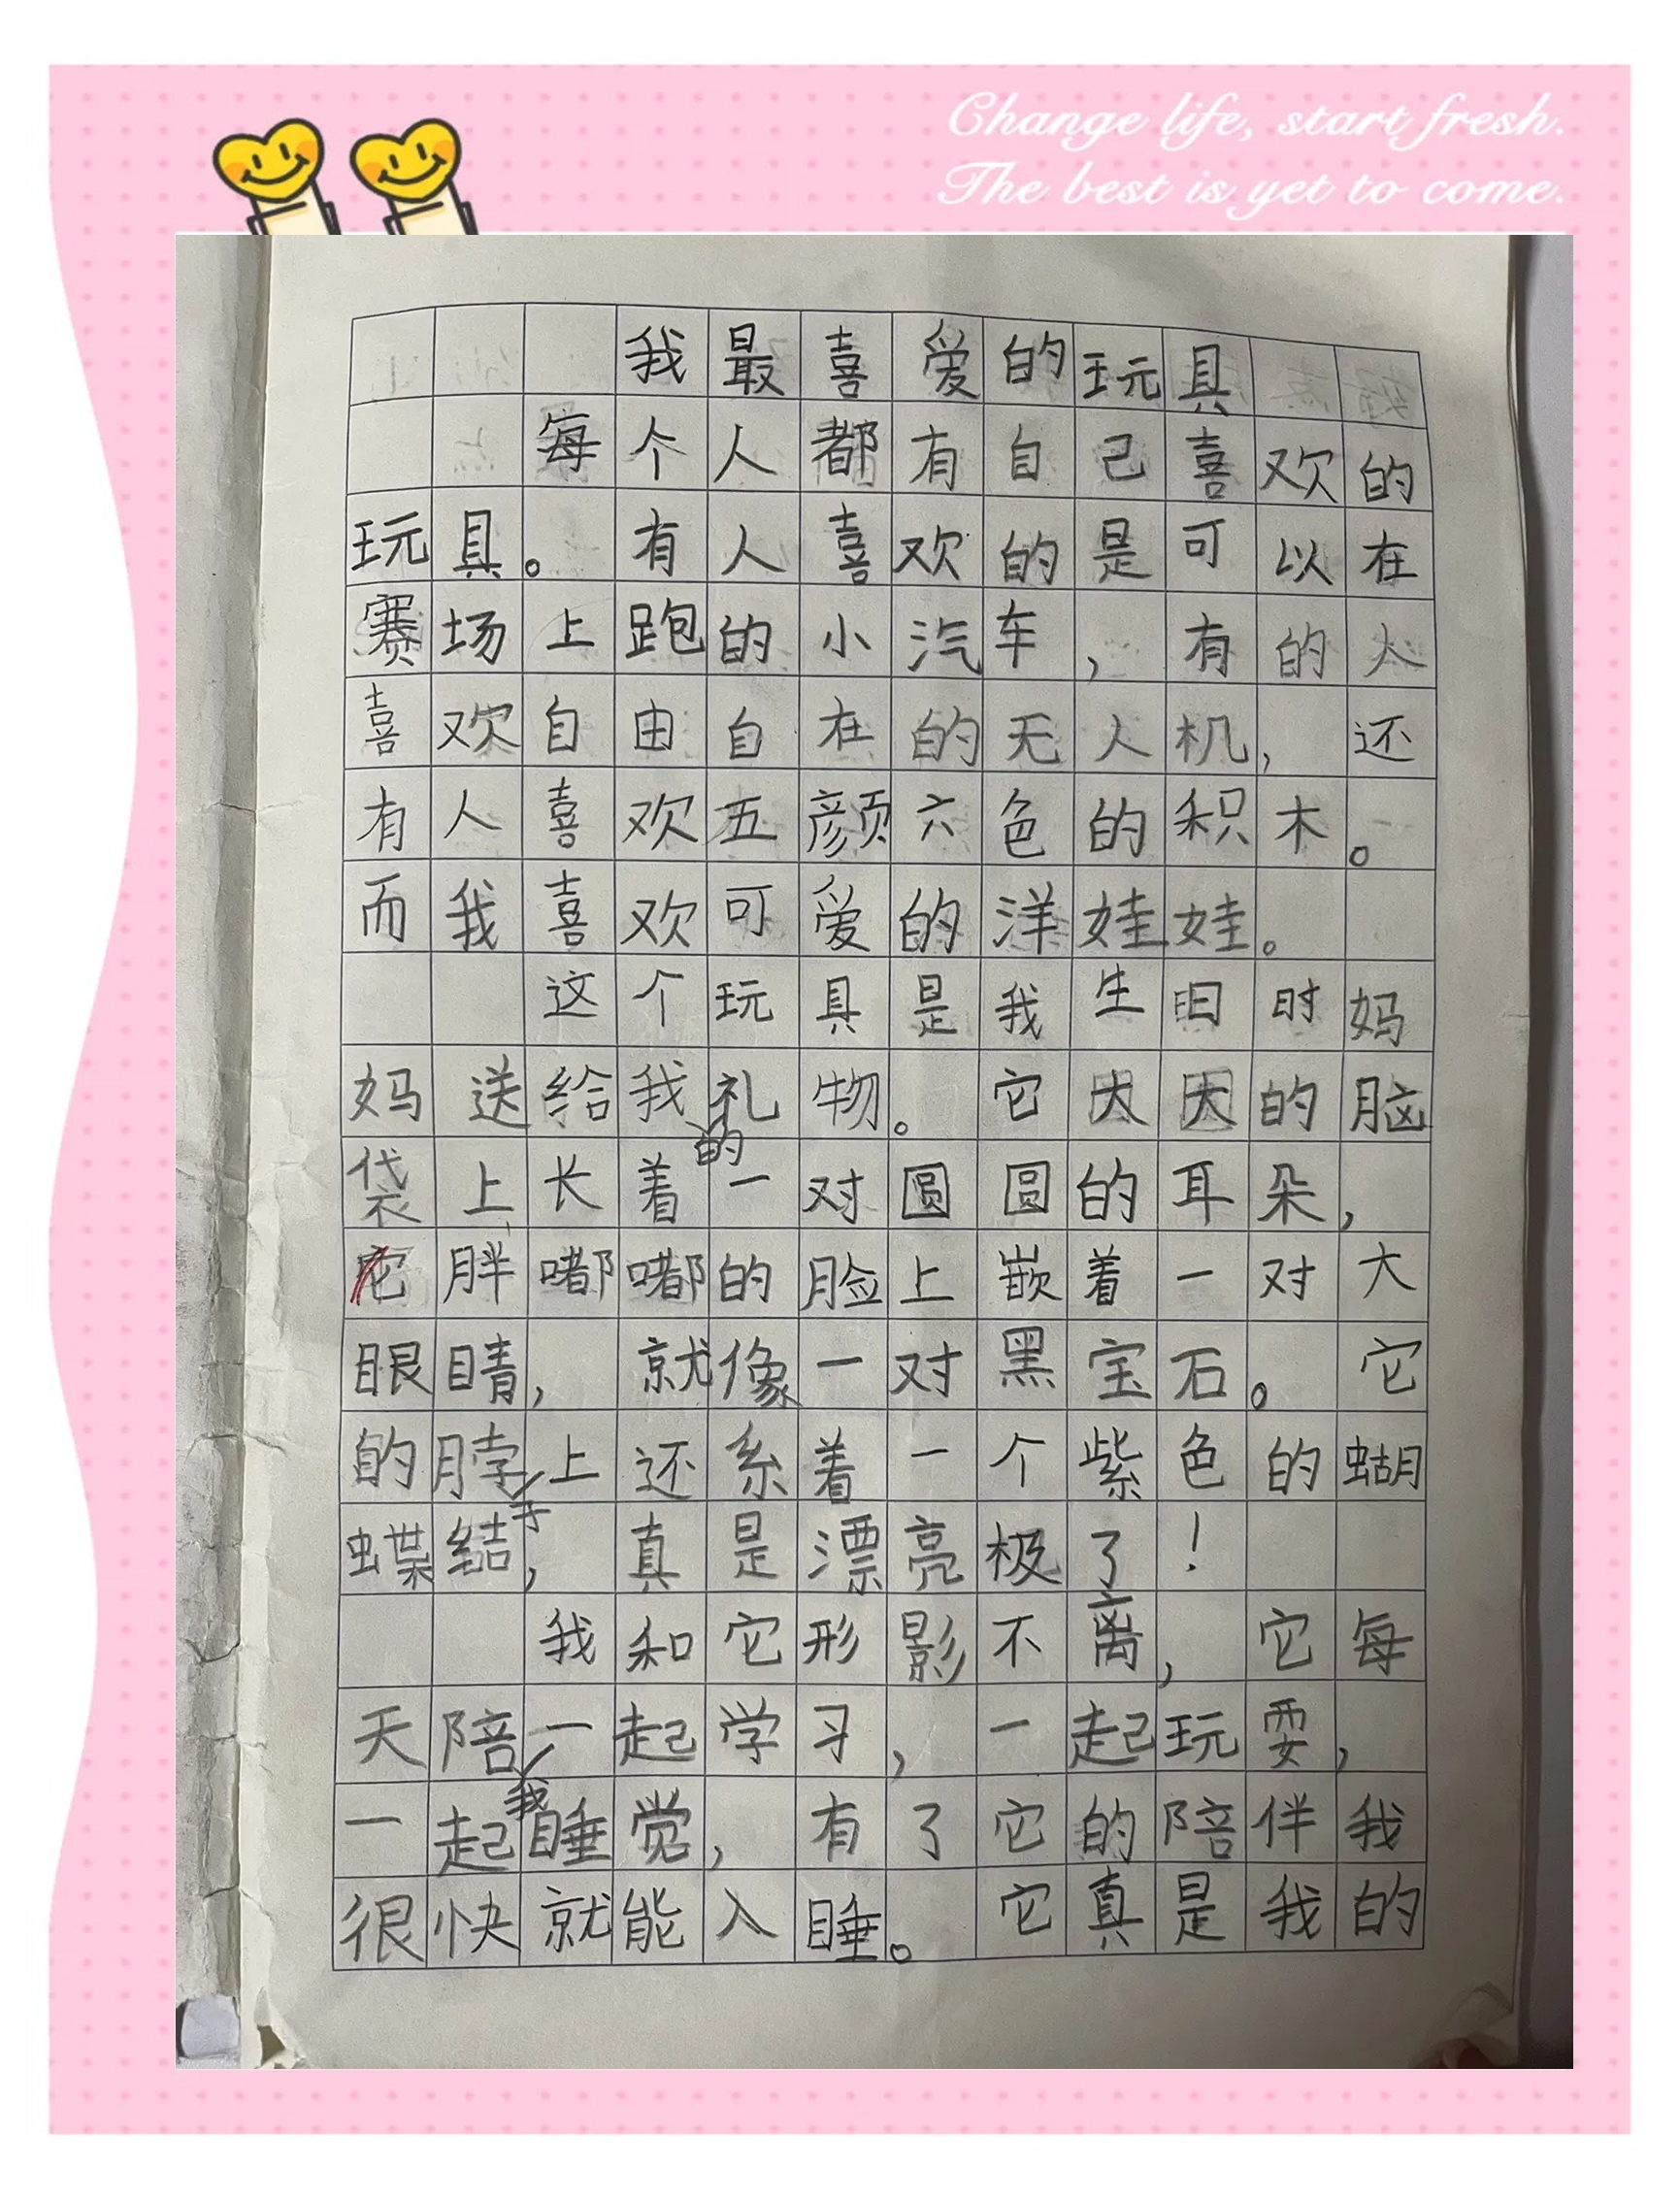 Change life, start fresh.
The best is yet to come.
我最喜爱的玩具
每个人都有自己喜欢的
玩具。有人喜欢的是可以在
赛场上跑的小汽车，有的人
喜欢自由自在的无人机，还
有人喜欢五颜六色的积木。
而我喜欢可爱的洋娃娃。
这个玩具是我生日时妈
妈送给我的礼物。它大大的脑
袋上长着一对圆圆的耳朵，
它胖嘟嘟的脸上嵌着一对大
眼睛，就像一对黑宝石。它
的脖子上还系着一个紫色的蝴
蝶结，真是漂亮极了！
我和它形影不离，它每
天陪我一起学习，一起玩耍，
一起睡觉，有了它的陪伴我
很快就能入睡。它真是我的